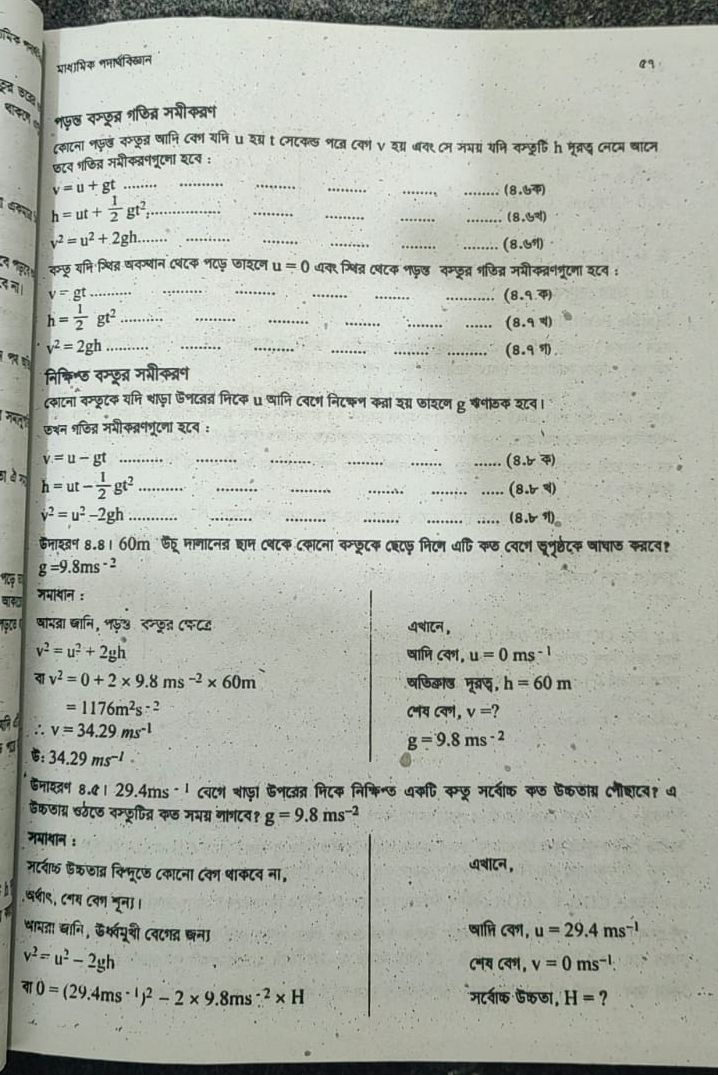 মাধ্যমিক পদার্থবিজ্ঞান
৫৭
পড়ন্ত বস্তুর গতির সমীকরণ
কোনো পড়ন্ত বস্তুর আদি বেগ যদি u হয় t সেকেন্ড পরে বেগ v হয় এবং সে সময় যদি বস্তুটি h দূরত্ব নেমে আসে
তবে গতির সমীকরণগুলো হবে :
v = u + gt ........ .......... .......... ........ ........ ........ (৪.৬ক)
h = ut + 1/2 gt², ................ .......... ........ ........ ........ (৪.৬খ)
v² = u² + 2gh....... .......... ........ ........ ........ (৪.৬গ)
বস্তু যদি স্থির অবস্থান থেকে পড়ে তাহলে u = 0 এবং স্থির থেকে পড়ন্ত বস্তুর গতির সমীকরণগুলো হবে :
v = gt .......... .......... .......... ........ ........ ........... (৪.৭ ক)
h = 1/2 gt² .......... .......... .......... ........ ........ ...... (৪.৭ খ)
v² = 2gh .......... .......... .......... ........ ........ ......... (৪.৭ গ)
নিক্ষিপ্ত বস্তুর সমীকরণ
কোনো বস্তুকে যদি খাড়া উপরের দিকে u আদি বেগে নিক্ষেপ করা হয় তাহলে g ঋণাত্মক হবে।
তখন গতির সমীকরণগুলো হবে :
v = u − gt .......... .......... .......... ........ ........ ...... (৪.৮ ক)
h = ut − 1/2 gt² .......... .......... ........ ........ ........ ..... (৪.৮ খ)
v² = u² −2gh ........... .......... .......... ........ ........ ..... (৪.৮ গ)
উদাহরণ ৪.৪। 60m উঁচু দালানের ছাদ থেকে কোনো বস্তুকে ছেড়ে দিলে এটি কত বেগে ভূপৃষ্ঠকে আঘাত করবে?
g =9.8ms⁻²
সমাধান :
আমরা জানি, পড়ন্ত বস্তুর ক্ষেত্রে
v² = u² + 2gh
বা v² = 0 + 2 × 9.8 ms⁻² × 60m
= 1176m²s⁻²
∴ v = 34.29 ms⁻¹
উ: 34.29 ms⁻¹
এখানে,
আদি বেগ, u = 0 ms⁻¹
অতিক্রান্ত দূরত্ব, h = 60 m
শেষ বেগ, v =?
g = 9.8 ms⁻²
উদাহরণ ৪.৫। 29.4ms⁻¹ বেগে খাড়া উপরের দিকে নিক্ষিপ্ত একটি বস্তু সর্বোচ্চ কত উচ্চতায় পৌঁছাবে? এ
উচ্চতায় উঠতে বস্তুটির কত সময় লাগবে? g = 9.8 ms⁻²
সমাধান :
সর্বোচ্চ উচ্চতার বিন্দুতে কোনো বেগ থাকবে না,
অর্থাৎ, শেষ বেগ শূন্য।
আমরা জানি, ঊর্ধ্বমুখী বেগের জন্য
v² = u² − 2gh
বা 0 = (29.4ms⁻¹)² − 2 × 9.8ms⁻² × H
এখানে,
আদি বেগ, u = 29.4 ms⁻¹
শেষ বেগ, v = 0 ms⁻¹
সর্বোচ্চ উচ্চতা, H = ?